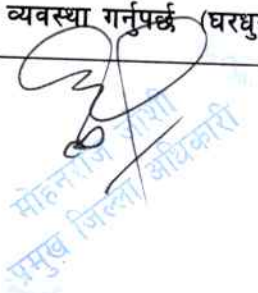 व्यवस्था गर्नुपर्छ (घरधु
मोहनराज जोशी
प्रमुख जिल्ला अधिकारी